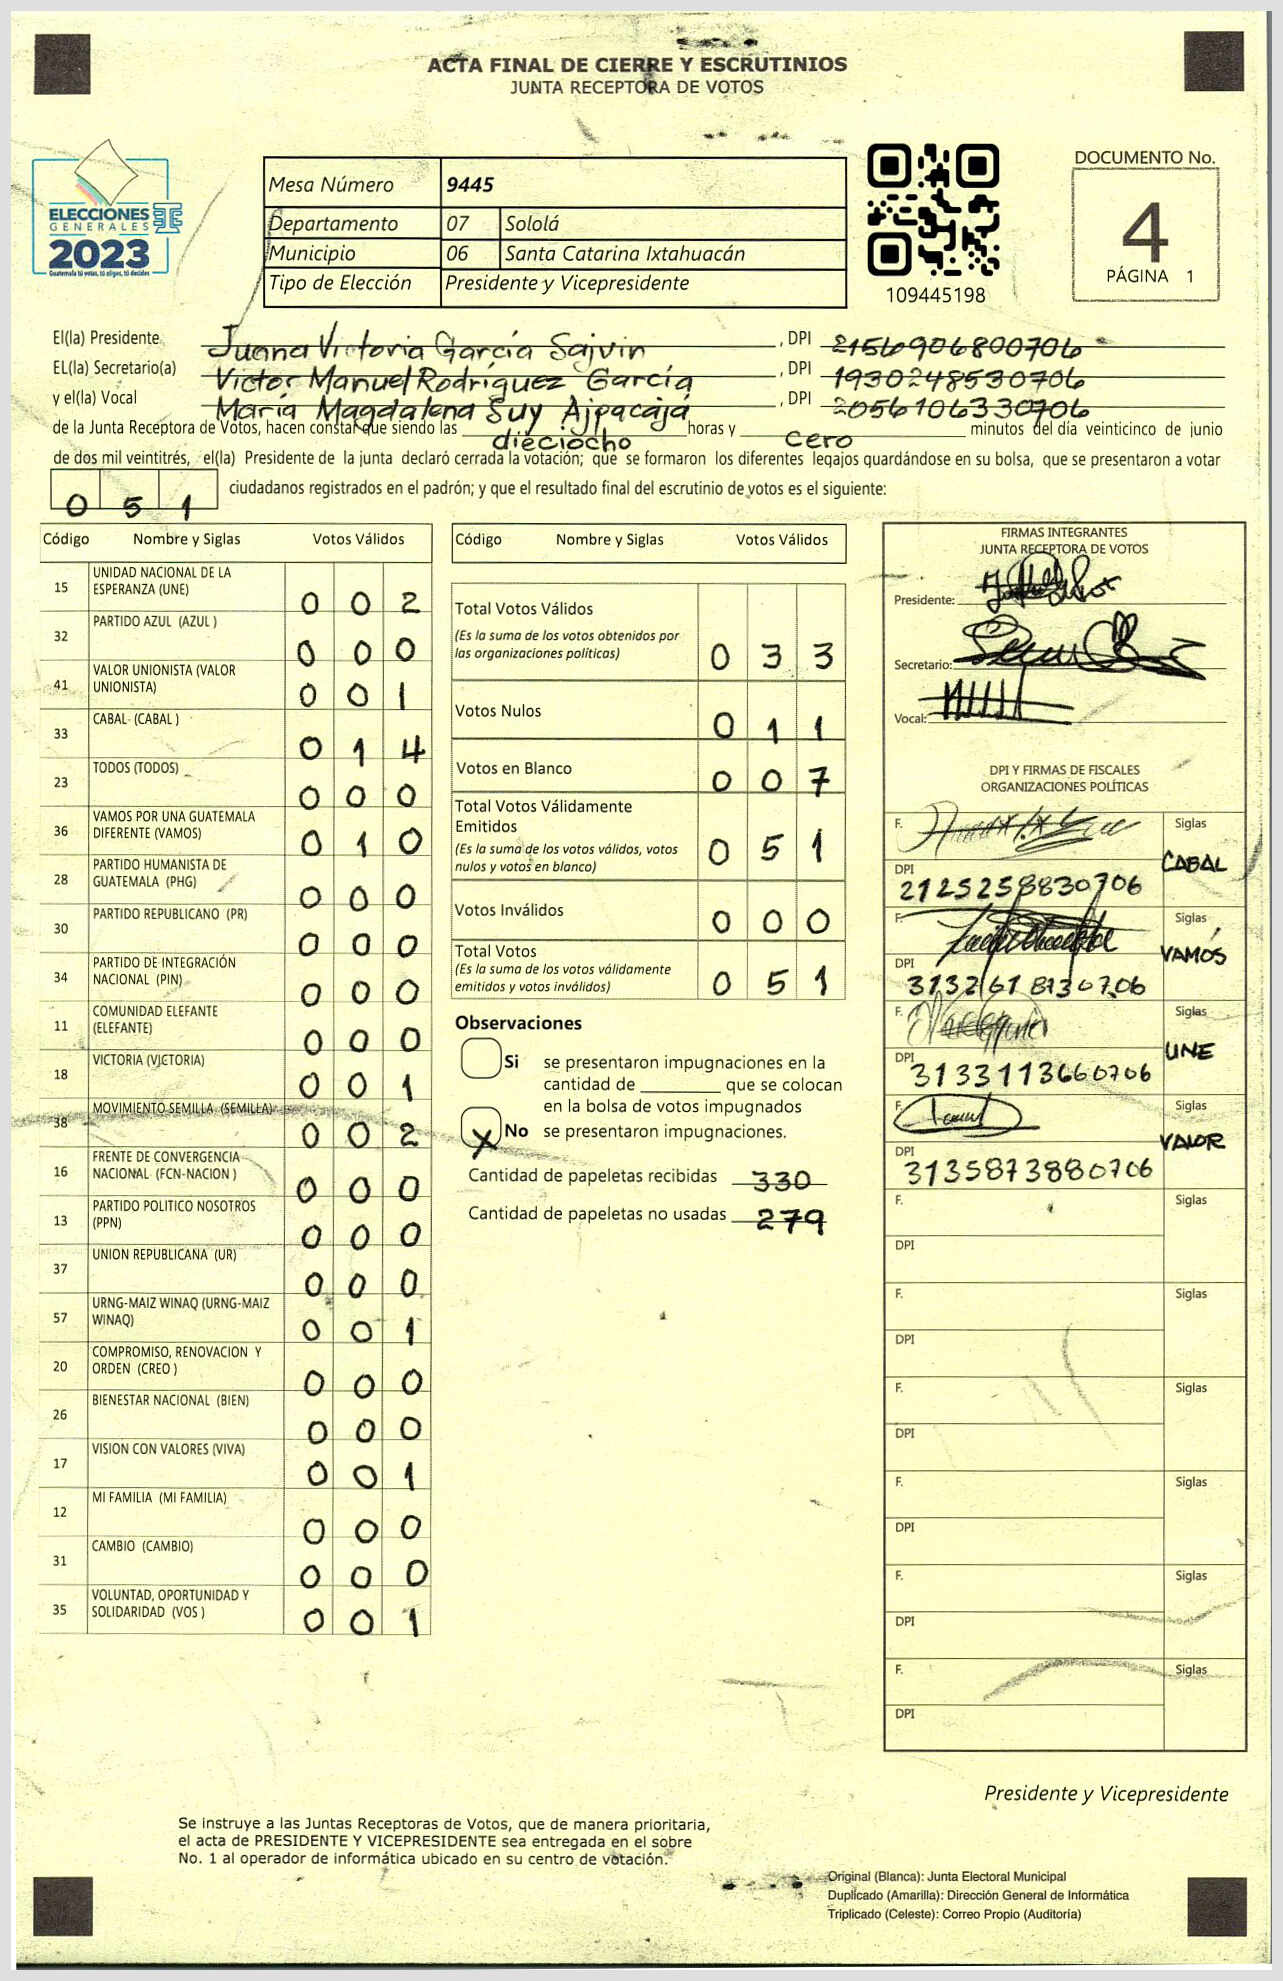 ACTA FINAL DE CIERRE Y ESCRUTINIOS
JUNTA RECEPTORA DE VOTOS
ELECCIONES
GENERALES
2023
Guatemala tú votas, tú eliges, tú decides
Mesa Número 9445
Departamento 07 Sololá
Municipio 06 Santa Catarina Ixtahuacán
Tipo de Elección Presidente y Vicepresidente
109445198
DOCUMENTO No.
4
PÁGINA 1
El(la) Presidente Juana Victoria García Sajvin , DPI 2156906800706
EL(la) Secretario(a) Victor Manuel Rodríguez García , DPI 1930248530706
y el(la) Vocal María Magdalena Suy Ajpacajá , DPI 2056106330706
de la Junta Receptora de Votos, hacen constar que siendo las dieciocho horas y cero minutos del día veinticinco de junio
de dos mil veintitrés, el(la) Presidente de la junta declaró cerrada la votación; que se formaron los diferentes legajos guardándose en su bolsa, que se presentaron a votar
0 5 1 ciudadanos registrados en el padrón; y que el resultado final del escrutinio de votos es el siguiente:
Código Nombre y Siglas Votos Válidos
15 UNIDAD NACIONAL DE LA ESPERANZA (UNE) 0 0 2
32 PARTIDO AZUL (AZUL ) 0 0 0
41 VALOR UNIONISTA (VALOR UNIONISTA) 0 0 1
33 CABAL (CABAL ) 0 1 4
23 TODOS (TODOS) 0 0 0
36 VAMOS POR UNA GUATEMALA DIFERENTE (VAMOS) 0 1 0
28 PARTIDO HUMANISTA DE GUATEMALA (PHG) 0 0 0
30 PARTIDO REPUBLICANO (PR) 0 0 0
34 PARTIDO DE INTEGRACIÓN NACIONAL (PIN) 0 0 0
11 COMUNIDAD ELEFANTE (ELEFANTE) 0 0 0
18 VICTORIA (VICTORIA) 0 0 1
38 MOVIMIENTO SEMILLA (SEMILLA) 0 0 2
16 FRENTE DE CONVERGENCIA NACIONAL (FCN-NACION ) 0 0 0
13 PARTIDO POLITICO NOSOTROS (PPN) 0 0 0
37 UNION REPUBLICANA (UR) 0 0 0
57 URNG-MAIZ WINAQ (URNG-MAIZ WINAQ) 0 0 1
20 COMPROMISO, RENOVACION Y ORDEN (CREO ) 0 0 0
26 BIENESTAR NACIONAL (BIEN) 0 0 0
17 VISION CON VALORES (VIVA) 0 0 1
12 MI FAMILIA (MI FAMILIA) 0 0 0
31 CAMBIO (CAMBIO) 0 0 0
35 VOLUNTAD, OPORTUNIDAD Y SOLIDARIDAD (VOS ) 0 0 1
Código Nombre y Siglas Votos Válidos
Total Votos Válidos
(Es la suma de los votos obtenidos por
las organizaciones políticas) 0 3 3
Votos Nulos 0 1 1
Votos en Blanco 0 0 7
Total Votos Válidamente
Emitidos
(Es la suma de los votos válidos, votos
nulos y votos en blanco) 0 5 1
Votos Inválidos 0 0 0
Total Votos
(Es la suma de los votos válidamente
emitidos y votos inválidos) 0 5 1
Observaciones
Si se presentaron impugnaciones en la
cantidad de ________ que se colocan
en la bolsa de votos impugnados
X No se presentaron impugnaciones.
Cantidad de papeletas recibidas 330
Cantidad de papeletas no usadas 279
FIRMAS INTEGRANTES
JUNTA RECEPTORA DE VOTOS
Presidente:
Secretario:
Vocal:
DPI Y FIRMAS DE FISCALES
ORGANIZACIONES POLÍTICAS
F. Siglas
CABAL
DPI 2125258830706
F. Siglas
VAMOS
DPI
F. Siglas
UNE
DPI 3133113660706
F. Siglas
VALOR
DPI 3135873880706
F. Siglas
DPI
F. Siglas
DPI
F. Siglas
DPI
F. Siglas
DPI
F. Siglas
DPI
F. Siglas
DPI
Presidente y Vicepresidente
Se instruye a las Juntas Receptoras de Votos, que de manera prioritaria,
el acta de PRESIDENTE Y VICEPRESIDENTE sea entregada en el sobre
No. 1 al operador de informática ubicado en su centro de votación.
Original (Blanca): Junta Electoral Municipal
Duplicado (Amarilla): Dirección General de Informática
Triplicado (Celeste): Correo Propio (Auditoría)